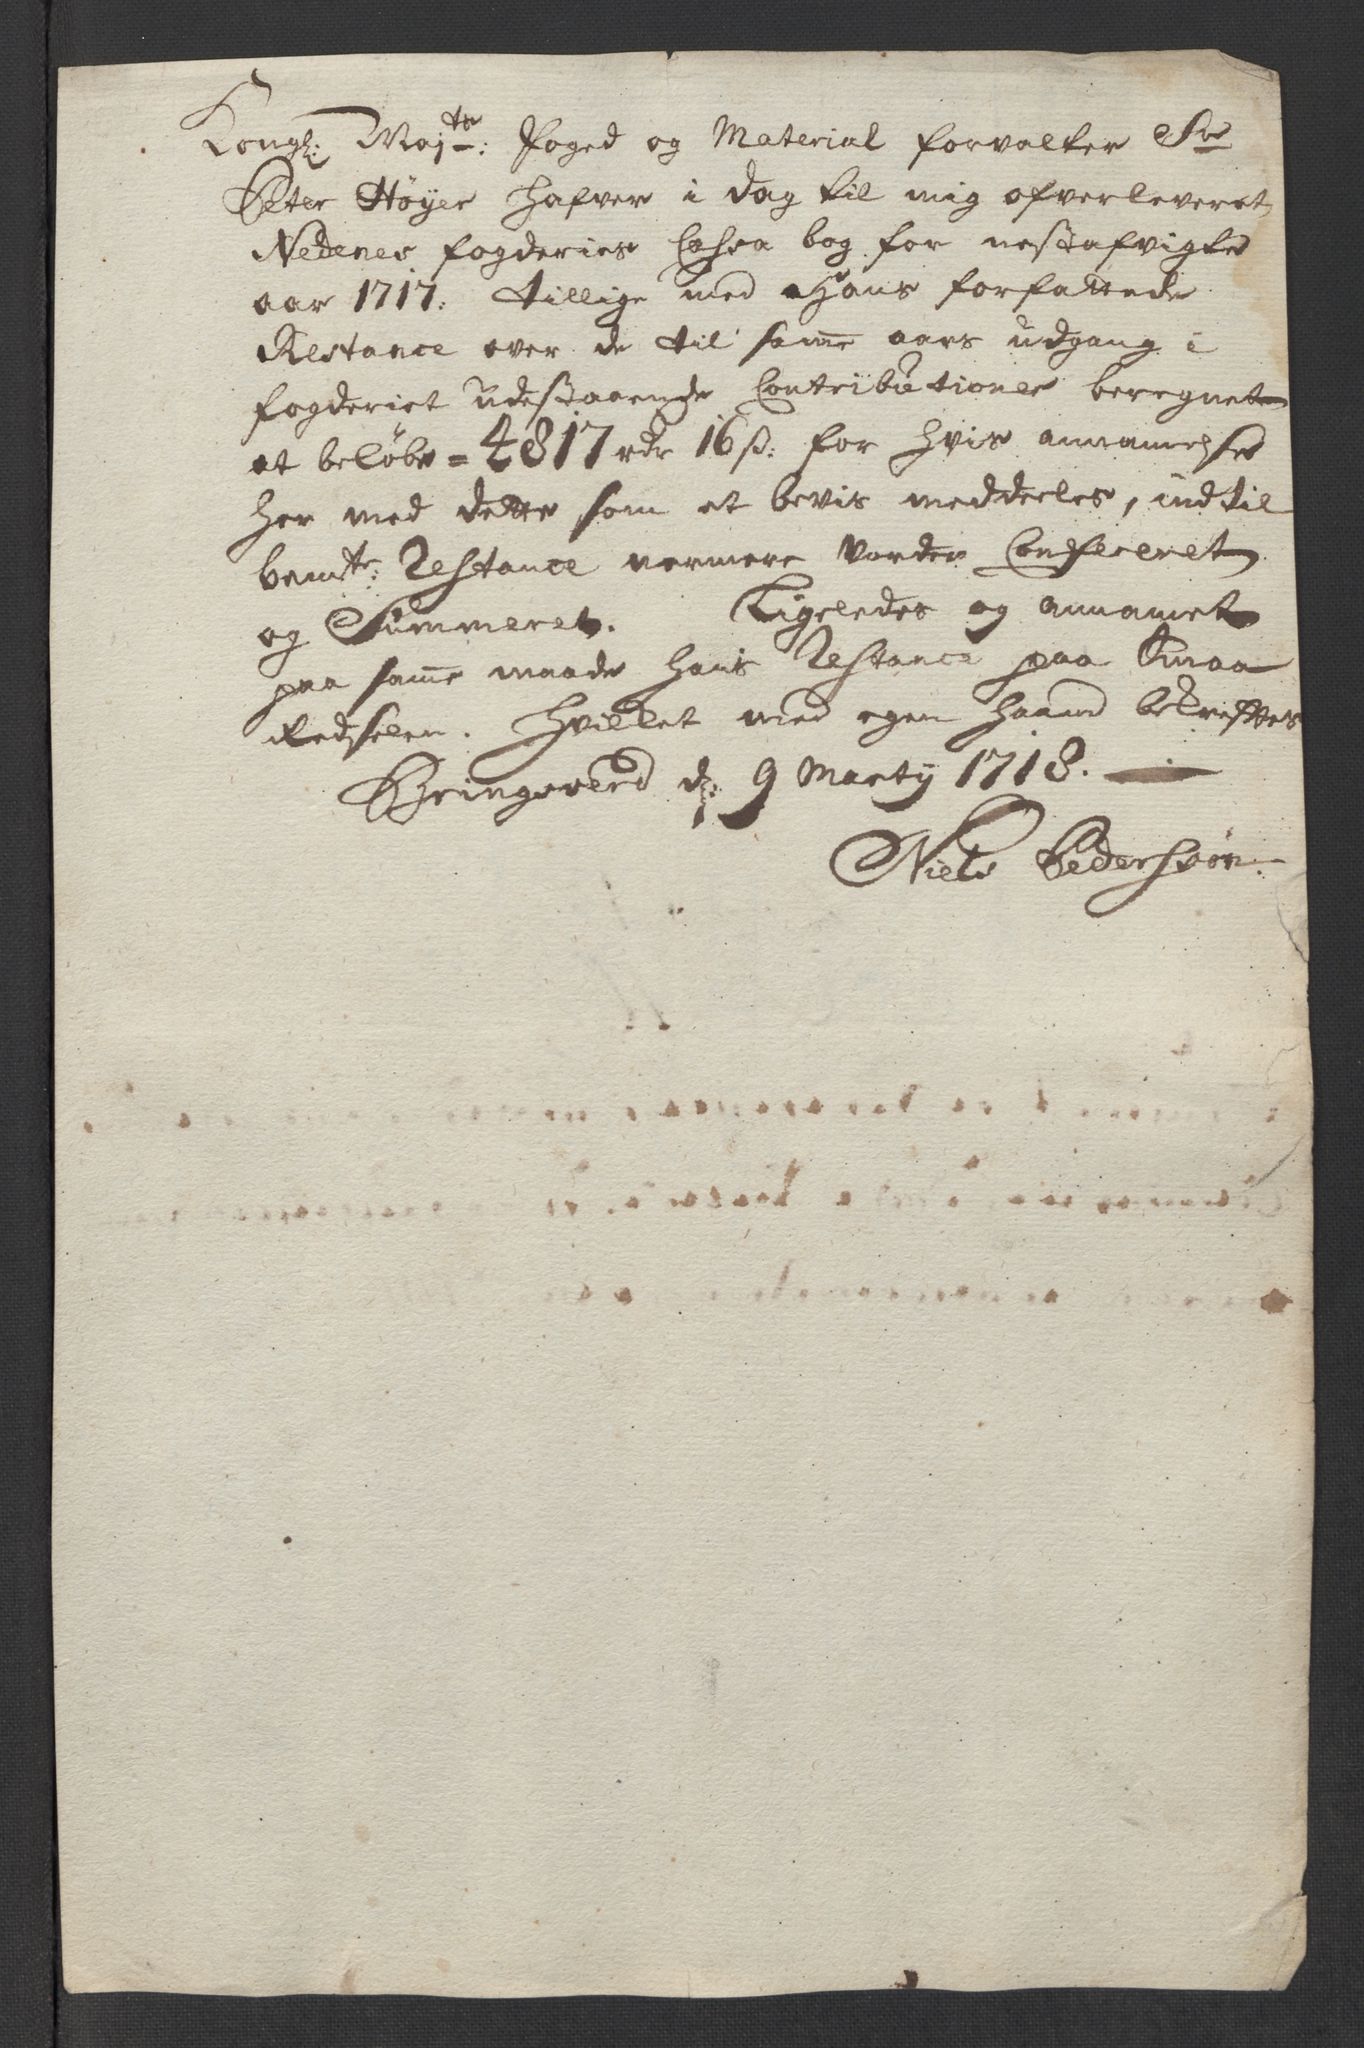 Kongl: Maj:ts Foged og Material forvalter Sr
Peter Höyer hafver i dag til mig ofverleveret
Nedenes fogderies Cassa bog for nestafvigte
aar 1717: tillige med Hans forfattede
Restance over de til samme aars udgang i
fogderiet udestaaende Contributioner beregnet
at beløbe = 4817 rdr 16 ß: for hvis annammelse
her med dette som et bevis meddeeles, indtil
bemte: Restance nermere vorder Confereret
og Summeret. Ligeledes og annamet
paa samme maade hans Restance paa Smaa
Redselen. Hvilket med egen haand bekreftes
Bringsverd d: 9 Marty 1718.
Niels Pedersøn